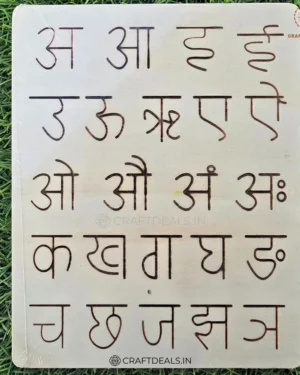 अ आ इ ई
उ ऊ ऋ ए ऐ
ओ औ अं अः
CRAFTDEALS.IN
क ख ग घ ङ
च छ ज झ ञ
CRAFTDEALS.IN